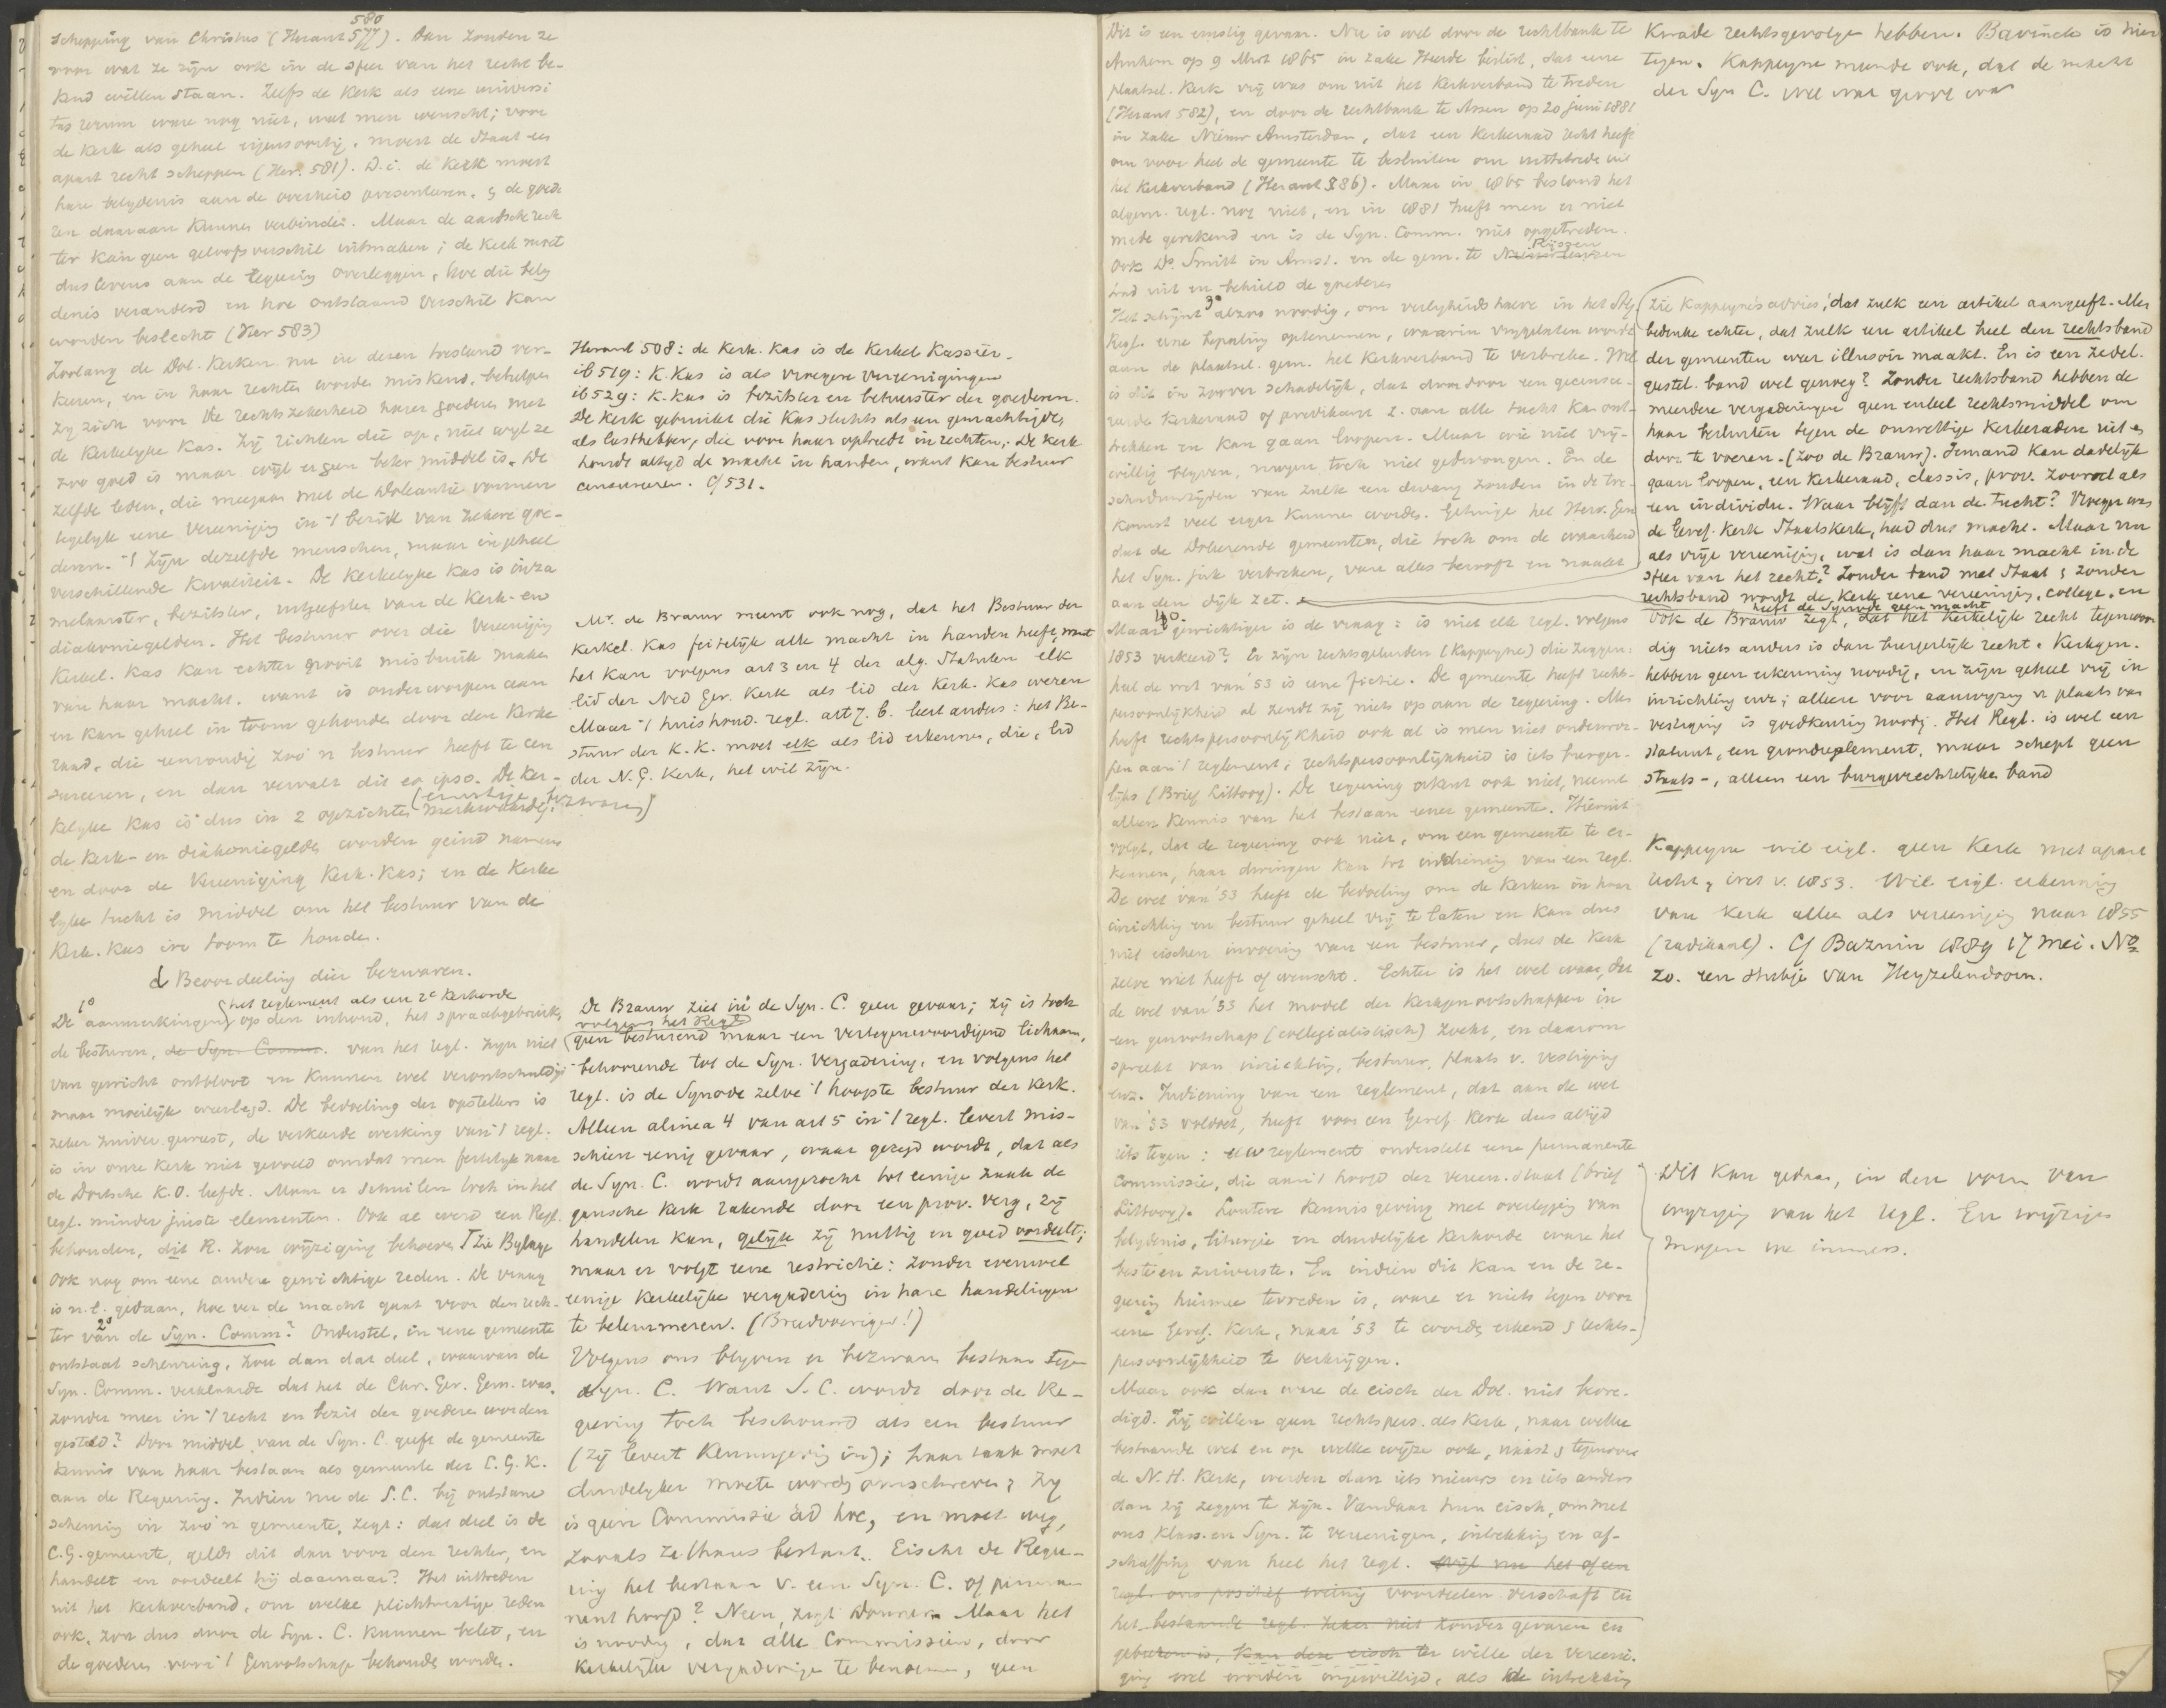 580
schepping van Christus (Heraut 577). Dan zouden ze
voor wat ze zijn ook in de sfeer van het recht be-
kend willen staan. Zelfs de Kerk als eene universi
tas rerum ware nog niet, wat men wenscht; voor
de Kerk als geheel eigensoortig, moest de Staat een
apart recht scheppen (Her. 581). D.i. de Kerk moest
hare belydenis aan de overheid presenteeren, & de goede
ren daaraan kunnen verbinden. Maar de aardsche rech
ter kan geen geloofsverschil uitmaken; de Kerk moet
dus tevens aan de regeering overleggen, hoe die bely
denis veranderd en hoe ontstaand verschil kan
worden beslecht (Her 583)
Zoolang de Dol. Kerken nu in dezen toestand ver-
keeren, en in haar rechten worden miskend, behelpen
zy zich voor de rechtszekerheid harer goederen met
de Kerkelyke Kas. Zij richten die op, niet wyl ze
zoo goed is maar wyl er geen beter middel is. De
zelfde leden, die meegaan met de Doleantie vormen
tegelyk eene Vereeniging in 't bezit van zekere goe-
deren. 't Zijn dezelfde menschen, maar in geheel
verschillende kwaliteit. De Kerkelyke Kas is inza
melaarster, bezitster, uitgeefster van de Kerk- en
diakoniegelden. Het bestuur over die Vereeniging
Kerkel. Kas kan echter nooit misbruik maken
van haar macht, want is onderworpen aan
en kan geheel in toom gehouden door den Kerke
raad, die eenvoudig zoo'n bestuur heeft te cen
sureeren, en dan vervalt dit eo ipso. De Ker-
(ernstige bezwaren)
kelyke Kas is dus in 2 opzichten merkwaardig:
de Kerk- en diakoniegelden worden geind namens
en door de Vereeniging Kerk. Kas; en de Kerke
lyke tucht is middel om het bestuur van de
Kerk. Kas in toom te houden.
d Beoordeeling dier bezwaren.
1o
het reglement als een 2e Kerkorde
De aanmerkingen op den inhoud, het spraakgebruik,
de besturen, de Syn. Comm. van het regl. zyn niet
van gewicht ontbloot en kunnen wel verontschuldigd
maar moeilijk weerlegd. De bedoeling der opstellers is
zeker zuiver geweest, de verkeerde werking van 't regl.
is in onze Kerk niet gevoeld omdat men feitelyk naar
de Dortsche K.O. leefde. Maar er schuilen toch in het
regl. minder juiste elementen. Ook al werd een Regl.
behouden, dit R. zou wijziging behoeven Zie Bylage
Ook nog om eene andere gewichtige reden. De vraag
is n.l. gedaan, hoe ver de macht gaat voor den rech-
2o
ter van de Syn. Comm? Onderstel, in eene gemeente
ontstaat scheuring, zou dan dat deel, waarvan de
Syn. Comm. verklaarde dat het de Chr. Ger. Gem. was,
zonder meer in 't recht en bezit der goederen worden
gesteld? Door middel van de Syn. C. geeft de gemeente
kennis van haar bestaan als gemeente der C.G.K.
aan de Regeering. Indien nu de S.C. bij ontstane
scheuring in zoo'n gemeente, zegt: dat deel is de
C.G. gemeente, geldt dit dan voor den rechter, en
handelt en oordeelt hij daarnaar? Het uittreden
uit het Kerkverband, om welke plichtmatige reden
ook, zou dus door de Syn. C. kunnen belet, en
de goederen voor 't Genootschap behouden worden.
Heraut 508: de Kerk. Kas is de Kerkel Kassier.
ib 519: K. Kas is als vroegere vereenigingen
ib 529: K. Kas is bezitster en bestuurster der goederen.
De Kerk gebruikt die Kas slechts als een gemachtigde,
als lasthebber, die voor haar optreedt in rechten; de Kerk
houdt altyd de macht in handen, want kan bestuur
censureeren. Cf 531.
Mr. de Brauw meent ook nog, dat het Bestuur der
Kerkel. Kas feitelijk alle macht in handen heeft, want
het kan volgens art 3 en 4 der alg. Statuten elk
lid der Ned Ger. Kerk als lid der Kerk. Kas weren
Maar 't huishoud. regl. art 7. b. leert anders: het Be-
stuur der K. K. moet elk als lid erkennen, die, lid
der N. G. Kerk, het wil zijn.
De Brauw ziet in de Syn. C. geen gevaar; zij is toch
volgens het Regl
geen besturend maar een vertegenwoordigend lichaam,
behoorende tot de Syn. Vergadering, en volgens het
regl. is de Synode zelve 't hoogste bestuur der Kerk.
Alleen alinea 4 van art 5 in 't regl. levert mis-
schien eenig gevaar, waar gezegd wordt, dat als
de Syn. C. wordt aangezocht tot eenige zaak de
gansche Kerk rakende door een prov. verg, zij
handelen kan, gelijk zij nuttig en goed oordeelt;
maar er volgt eene restrictie: zonder evenwel
eenige Kerkelijke vergadering in hare handelingen
te belemmeren. (Breedvoeriger!)
Volgens ons blyven er bezwaren bestaan tegen
Syn. C. Want S. C. wordt door de Re-
geering toch beschouwd als een bestuur
(zij levert Kennisgeving in); haar taak moet
duidelyker moeten worden omschreven; zy
is geen Commissie ad hoc, en moet weg,
zooals ze thans bestaat. Eischt de Regee-
ring het bestaan v. een Syn. C. of perma
nent hoofd? Neen, zegt Donner. Maar het
is noodig, dat alle Commissien, door
Kerkelyke vergaderingen te benoemen, geen
Dit is een ernstig gevaar. Nu is wel door de rechtbank te
Arnhem op 9 Mrt 1865 in zake Heerde beslist, dat eene
plaatsel. Kerk vrij was om uit het Kerkverband te treden
(Heraut 582), en door de rechtbank te Assen op 20 juni 1881
in zake Nieuw Amsterdam, dat een Kerkeraad recht heeft
om voor heel de gemeente te besluiten om uittetreden uit
het Kerkverband (Heraut 386). Maar in 1865 bestond het
algem. regl. nog niet, en in 1881 heeft men er niet
mede gerekend en is de Syn. Comm. niet opgetreden.
Rijssen
Ook Ds. Smitt in Amst. en de gem. te
trad uit en behield de goederen
3o
Het schijnt alzoo noodig, om veiligheids halve in het Alg
Regl. eene bepaling optenemen, waarin vrygelaten wordt
aan de plaatsel. gem. het Kerkverband te verbreken. Wel
is dit in zoover schadelijk, dat daardoor een gecensu-
reerde Kerkeraad of predikant z. aan alle tucht kan ont-
trekken en kan gaan loopen. Maar wie niet vrij-
willig blyven, mogen toch niet gedwongen. En de
schaduwzijden van zulk een dwang zouden in de toe-
komst veel erger kunnen worden. Getuige het Herv. Gen
dat de Doleerende gemeenten, die toch om de waarheid
het Syn. juk verbreken, van alles berooft en naakt
aan den dijk zet.
4o
Maar gewichtiger is de vraag: is niet elk regl. volgens
1853 verkeerd? Er zijn rechtsgeleerden (Kappeyne) die zeggen:
heel de wet van '53 is eene fictie. De gemeente heeft rechts-
persoonlijkheid al zendt zij niets op aan de regeering. Men
heeft rechtspersoonlijkheid ook al is men niet onderwor-
pen aan 't reglement; rechtspersoonlijkheid is iets burger-
lijks (Brief Littooy). De regeering erkent ook niet, neemt
alleen kennis van het bestaan eener gemeente. Hieruit
volgt, dat de regeering ook niet, om een gemeente te er-
kennen, haar dwingen kan tot indiening van een regl.
De wet van '53 heeft de bedoeling om de Kerken in haar
inrichting en bestuur geheel vrij te laten en kan dus
niet eischen invoering van een bestuur, dat de Kerk
zelve niet heeft of wenscht. Echter is het wel waar, dat
de wet van '53 het model der Kerkgenootschappen in
een genootschap (collegialistisch) zoekt, en daarom
spreekt van inrichting, bestuur, plaats v. vestiging
enz. Indiening van een reglement, dat aan de wet
van '53 voldoet, heeft voor een Geref. Kerk dus altijd
iets tegen: een reglement onderstelt eene permanente
Commissie, die aan 't hoofd der vereen. staat (brief
Littooy). Loutere kennisgeving met overlegging van
belydenis, liturgie en duidelijke Kerkorde ware het
beste en zuiverste. En indien dit kan en de re-
geering hiermee tevreden is, ware er niets tegen voor
eene Geref. Kerk, naar '53 te worden erkend & rechts-
persoonlijkheid te verkrijgen.
Maar ook dan ware de eisch der Dol. niet bevre-
digd. Zij willen geen rechtspers. als Kerk, naar welke
bestaande wet en op welke wijze ook, naast & tegenover
de N. H. Kerk, werden dan iets nieuws en iets anders
dan zij zeggen te zijn. Vandaar hun eisch, om met
ons Klass. en Syn. te vereenigen, intrekking en af-
schaffing van heel het regl. Wijl nu het of een
regl. ons positief weinig voordeelen verschaft en
het bestaande regl. zeker niet zonder gevaren en
gebreken is, kan den eisch ter wille der vereeni-
ging wel worden ingewilligd, als de intrekking
Kwade rechtsgevolgen hebben. Bavinck is hier
tegen. Kappeyne meende ook, dat de macht
der Syn C. wel wat groot was
Zie Kappeyne's advies, dat zulk een artikel aangeeft. Men
bedenke echter, dat zulk een artikel heel den rechtsband
der gemeenten weer illusoir maakt. En is een zedel.
geestel. band wel genoeg? Zonder rechtsband hebben de
meerdere vergaderingen geen enkel rechtsmiddel om
haar besluiten tegen de onwettige Kerkeraden uit en
door te voeren. (zoo de Brauw). Iemand kan dadelijk
gaan loopen, een Kerkeraad, classis, prov. zoowel als
een individu. Waar blijft dan de tucht? Vroeger was
de Geref. Kerk Staatskerk, had dus macht. Maar nu
als vrije vereeniging, wat is dan haar macht in de
sfeer van het recht? Zonder band met Staat & zonder
rechtsband wordt de Kerk eene vereeniging, college, en
heeft de Synode geen macht
Ook de Brauw zegt, dat het Kerkelijk recht tegenwoor
dig niets anders is dan burgerlijk recht. Kerkgen.
hebben geen erkenning noodig, en zijn geheel vrij in
inrichting enz; alleen voor aanwyzing v plaats van
vestiging is goedkeuring noodig. Het Regl. is wel een
statuut, een grondreglement, maar schept geen
staats-, alleen een burgerrechtelyken band
Kappeyne wil eigl. geen Kerk met apart
recht, wet v. 1853. Wil eigl. erkenning
van Kerk alleen als vereeniging naar 1855
(radikaal). Cf Bazuin 1889 17 Mei. No
20. een stukje van Heyzelendoorn.
Dit kan gedaan, in den vorm van
wyziging van het regl. En wyzigen
mogen we immers.